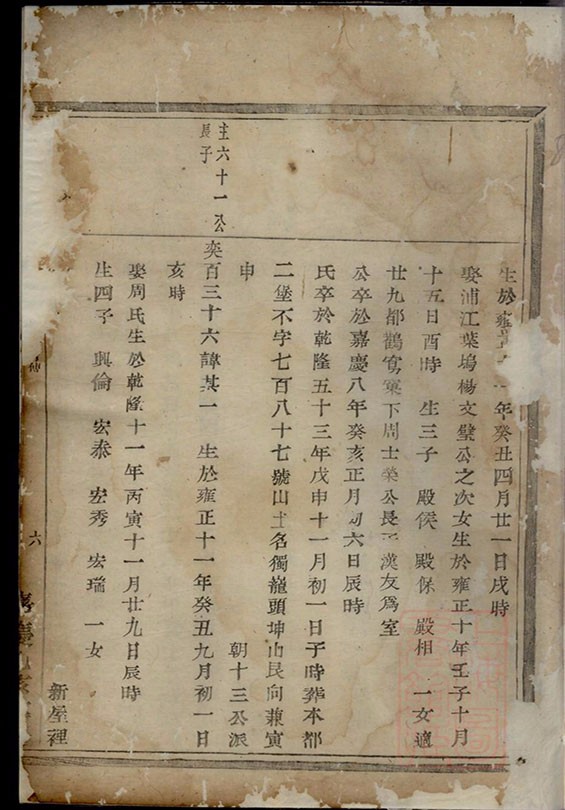 生於雍正十一年癸丑四月廿一日戌時
娶浦江葉塢楊文璧公之次女生於雍正十年壬子十月
十五日酉時 生三子 殿侯 殿保 殿相 一女適
廿九都鶴窩寀下周士榮公長子漢友爲室
公卒於嘉慶八年癸亥正月初六日辰時
氏卒於乾隆五十三年戊申十一月初一日子時葬本都
二堡不字七百八十七號山土名獨龍頭坤山艮向兼寅
申 朝十三公派
圭六十一公
長子
奕百三十六諱其一 生於雍正十一年癸丑九月初一日
亥時
娶周氏生於乾隆十一年丙寅十一月廿九日辰時
生四子 興倫 宏泰 宏秀 宏瑞 一女
新屋裡
六